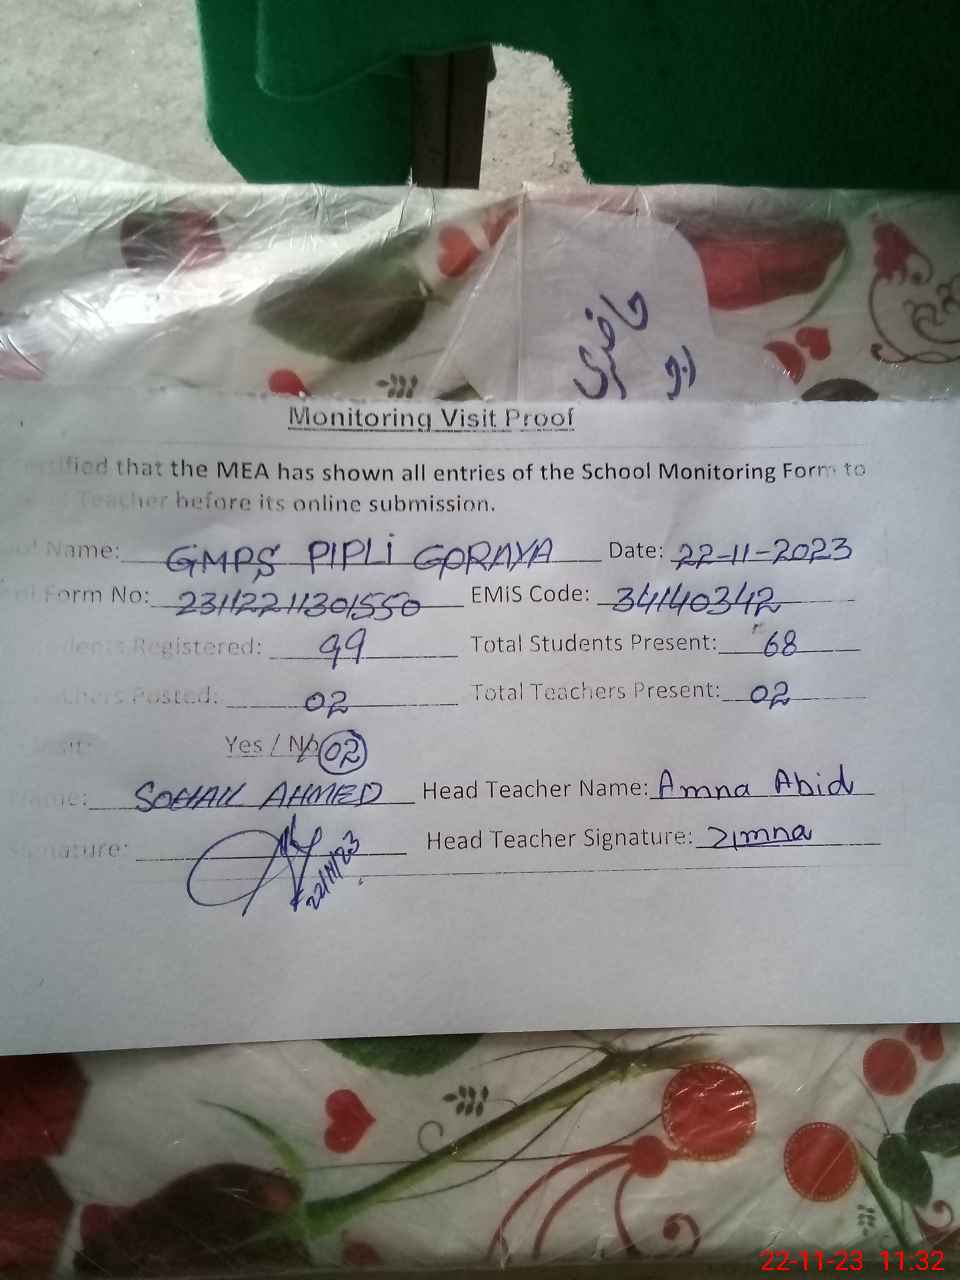 حاضری
Monitoring Visit Proof
rtified that the MEA has shown all entries of the School Monitoring Form to
Teacher before its online submission.
Name: GMPS PIPLI GORAYA Date: 22-11-2023
Form No: 23112211301550 EMiS Code: 34140342
dents Registered: 99 Total Students Present: 68
chers Posted: 02 Total Teachers Present: 02
Yes / No 02
Name: SOHAIL AHMED Head Teacher Name: Amna Abid
Signature: 22/11/23 Head Teacher Signature: Amna
22-11-23 11:32